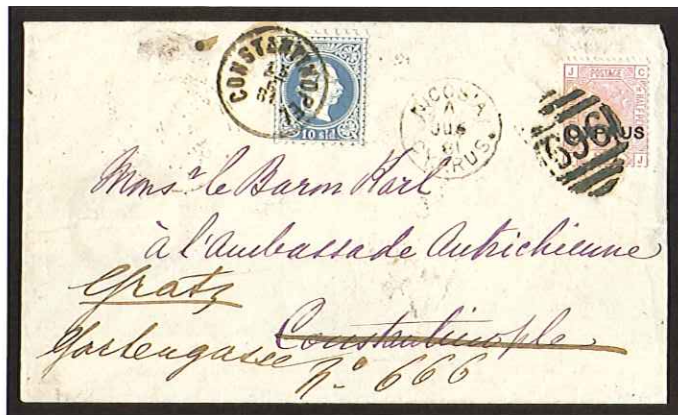 CONSTANTINOPEL
10 sld
NICOSIA
A
CYPRUS
POSTAGE
J C
CYPRUS
J
696
Monsr le Baron Karl
à l'Ambassade Autrichienne
Constantinople
Gratz
Gartengasse
No 666